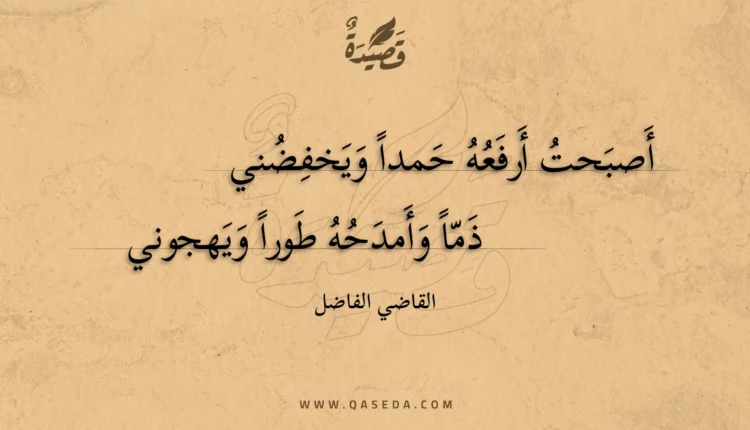 قَصِيْدَةٌ
أَصبَحتُ أَرفَعُهُ حَمداً وَيَخفِضُني
ذَمّاً وَأَمدَحُهُ طَوراً وَيَهجوني
القاضي الفاضل
WWW.QASEDA.COM